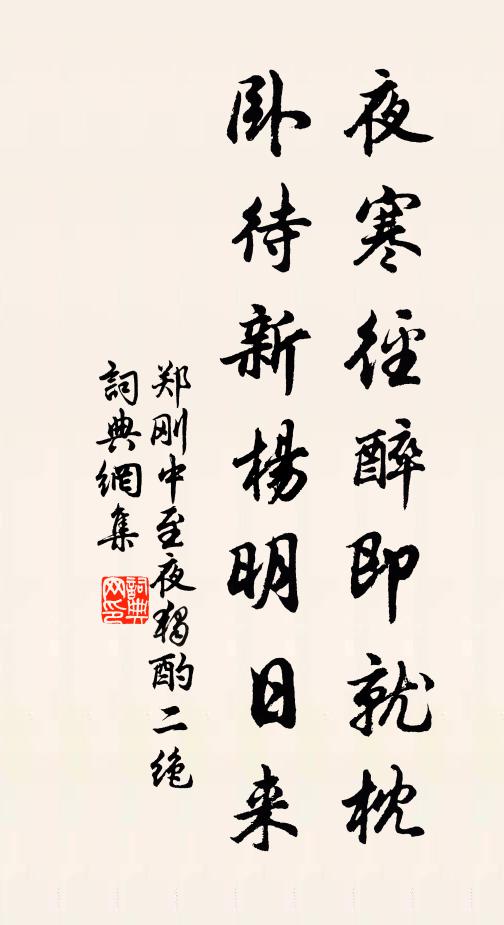 夜寒徑醉即就枕
卧待新楊明日来
郑刚中至夜獨酌二绝
詞典網集
詞典
网印